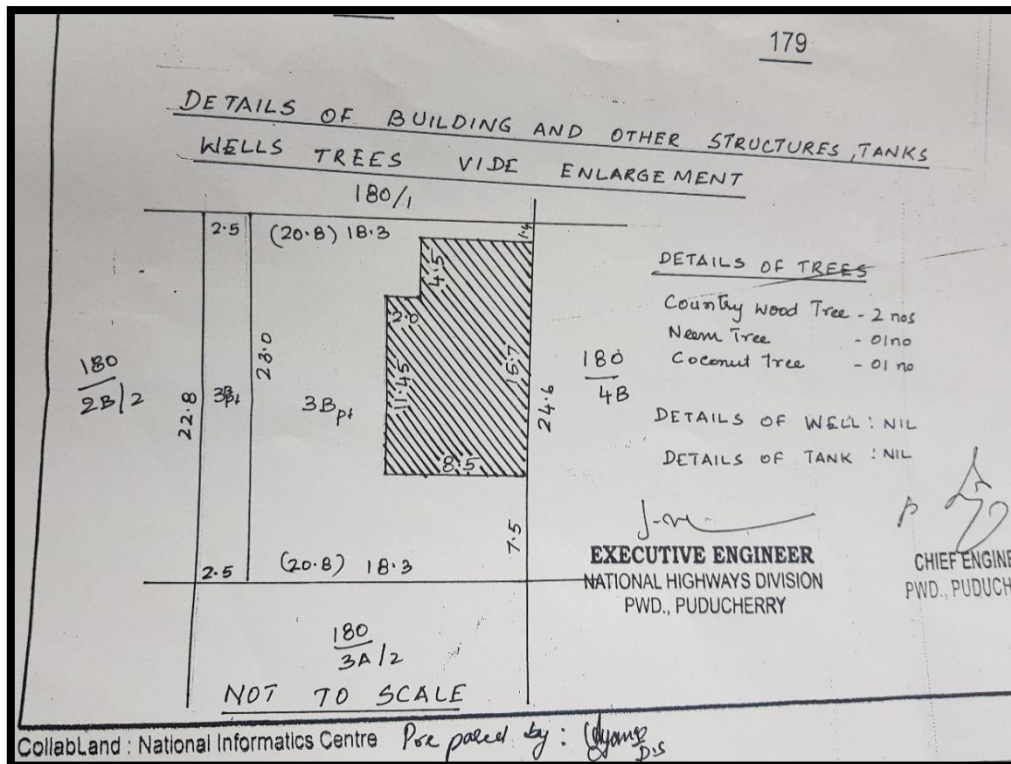 179
DETAILS OF BUILDING AND OTHER STRUCTURES, TANKS
WELLS TREES VIDE ENLARGEMENT
180/1
2.5 (20.8) 18.3 1.4
4.5
2.0
11.45
15.7
8.5
180
2B/2
22.8
3Bpt
23.0
3Bpt
24.6
180
4B
7.5
2.5 (20.8) 18.3
180
3A/2
NOT TO SCALE
DETAILS OF TREES
Country wood Tree - 2 nos
Neem Tree - 01no
Coconut Tree - 01 no
DETAILS OF WELL : NIL
DETAILS OF TANK : NIL
EXECUTIVE ENGINEER
NATIONAL HIGHWAYS DIVISION
PWD., PUDUCHERRY
CHIEF ENGINE
PWD., PUDUCH
CollabLand : National Informatics Centre Prepared by :
D.S